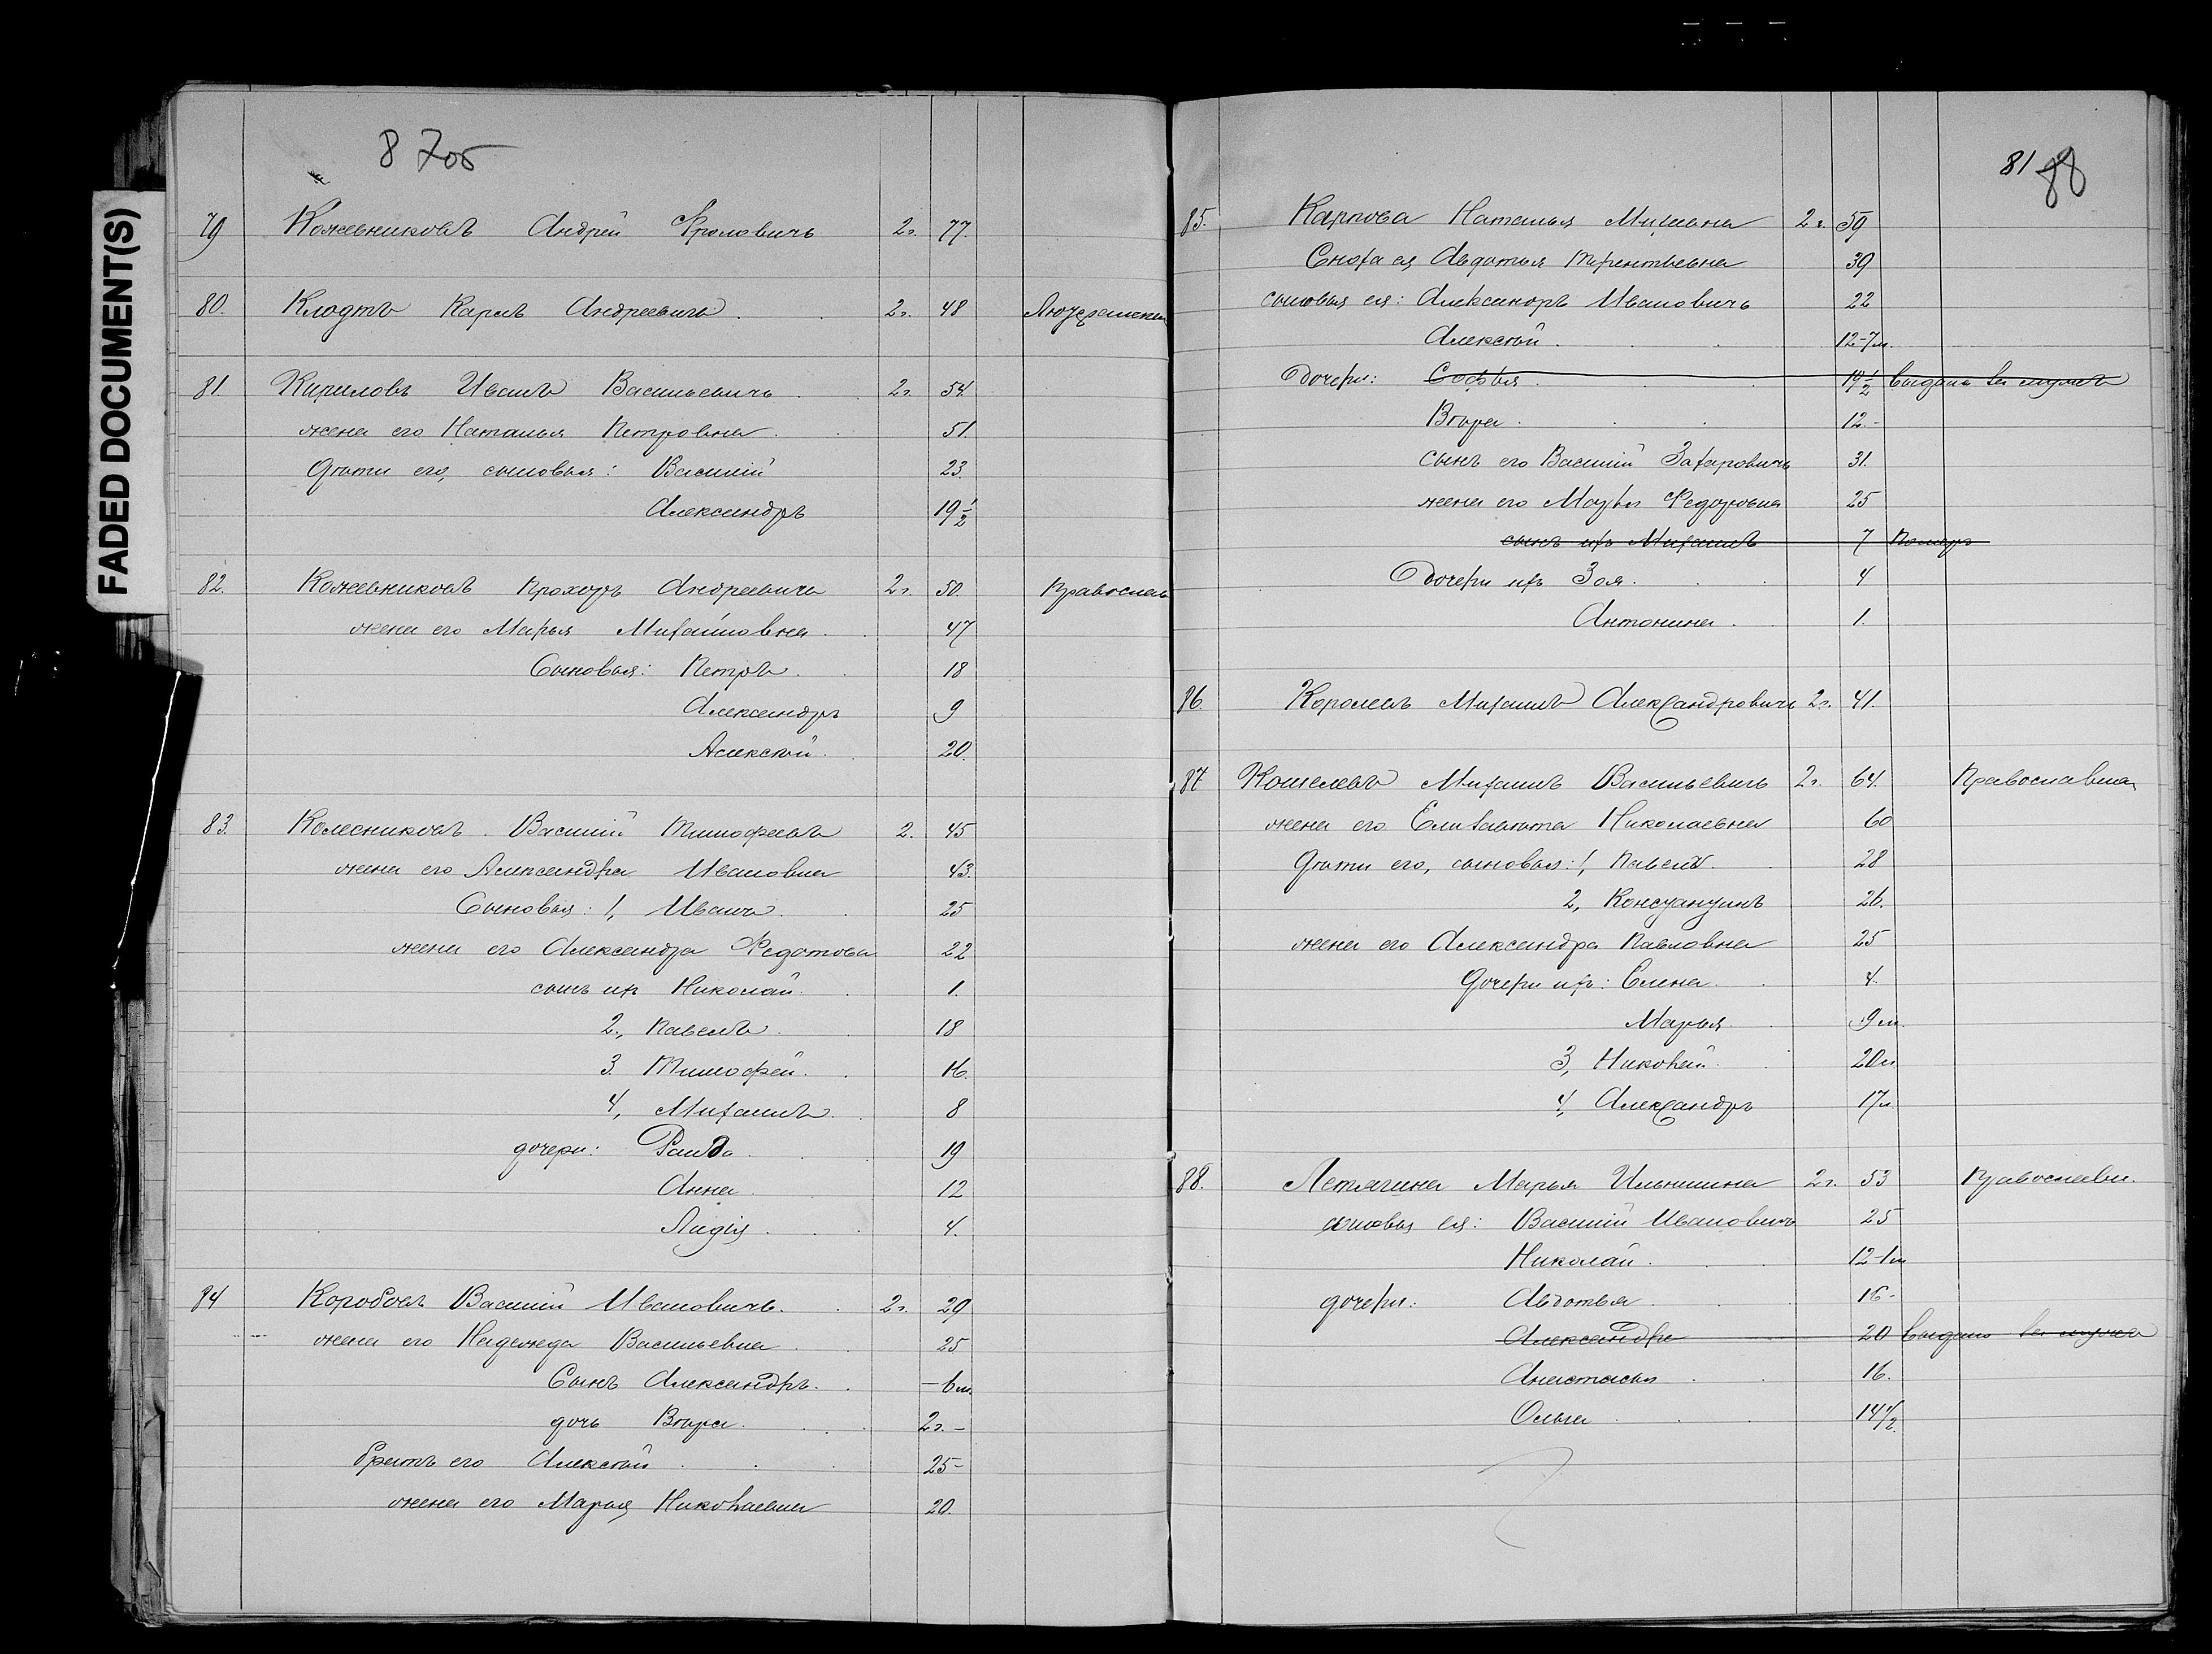 FADED DOCUMENT(S)
8 705
79 Кожевниковъ Андрей Фроловичъ 2г. 77.
80. Клодтъ Карлъ Андреевичъ 2г. 48
81. Кириловъ Иванъ Васильевичъ 2г. 54.
жена его Наталья Петровна 51.
Дѣти его, сыновья: Василій 23.
Александръ 19 1/2
82. Кожевниковъ Прохоръ Андреевичъ 2г. 50. Православ
жена его Марья Михайловна 47
Сыновья: Петръ 18
Александръ 9
Алексѣй 20.
83. Колесниковъ Василій Тимофеевъ 2. 45
жена его Александра Ивановна 43.
Сыновья: 1, Иванъ 25
жена его Александра Федотова 22
сынъ их Николай 1.
2., Павелъ 18
3. Тимофей 16.
4, Михаилъ 8
дочери: Раида 19
Анна 12
Лидія 4.
84 Коробовъ Василій Ивановичъ 2г. 29
жена его Надежда Васильевна 25
Сынъ Александръ. – 6 м.
дочь Вѣра 2г. –
братъ его Алексѣй 25 –
жена его Марья Николаевна 20.
81 88
85. Карпова Наталья 2г. 59
Сноха ея Авдотья Терентьевна 39
сыновья ея: Александръ Ивановичъ 22
Алексѣй 12–7м.
Дочери: Софья 19 1/2 выдана въ
Вѣра 12 –
сынъ его Василій Захаровичъ 31.
жена его Марья Федоровна 25
сынъ ихъ Михаилъ 7 Померъ
Дочери ихъ Зоя 4
Антонина 1.
86. Королевъ Михаилъ Александровичъ 2г. 41.
87 Кошелевъ Михаилъ Васильевичъ 2г. 64. Православная
жена его Елизавѣта Николаевна 60
Дѣти его, сыновья: 1, Павелъ 28
2, Константинъ 26.
жена его Александра Павловна 25
Дочери ихъ: Елена 4.
Марья 9 м
3, Николай 20
4, Александръ 17
88. Летягина Марья Ильинична 2г. 53 Православн.
сыновья ея: Василій Ивановичъ 25
Николай 12–1м
дочери: Авдотья 16 –
Александра 20 выдана
Анастасья 16.
Ольга 14 1/2